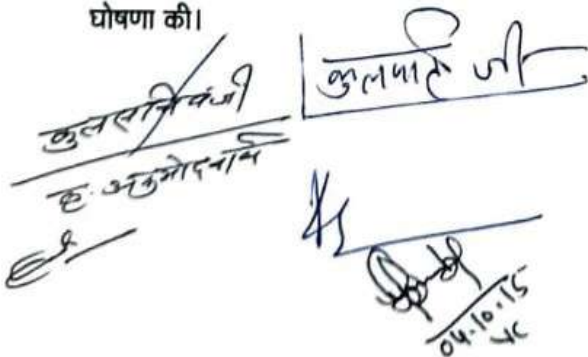 घोषणा की।
कुलसचिव जी
कुलपति जी
कृ. अनुमोदनार्थ
04.10.15
VC